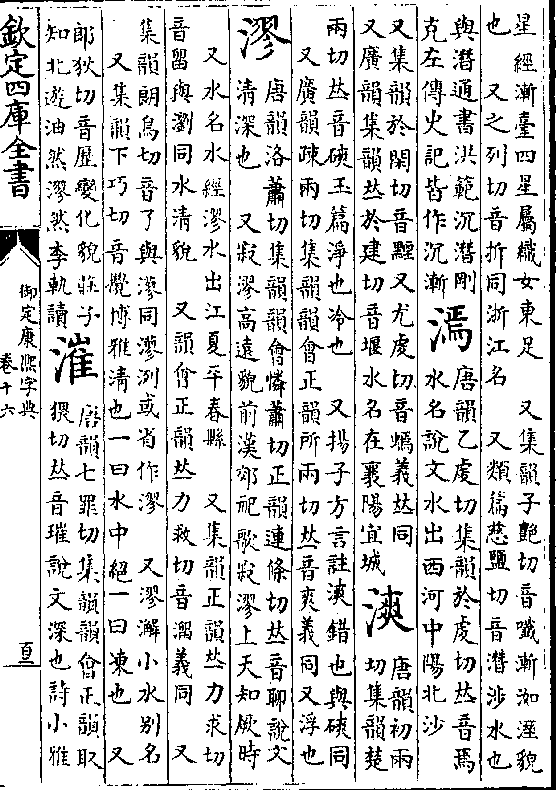 星經漸臺四星屬織女東足　又集韻子艷切音殱漸洳溼貌
也　又之列切音折同浙江名　又類篇慈鹽切音潛涉水也
與潛通書洪範沉潛剛
克左傳史記皆作沉漸
漹
唐韻乙䖍切集韻於䖍切𠀤音焉
水名說文水出西河中陽北沙
又集韻於閑切音黫又尤䖍切音𧍪義𠀤同
又廣韻集韻𠀤於建切音堰水名在襄陽宜城
漺
唐韻初兩
切集韻楚
兩切𠀤音磢玉篇淨也冷也　又揚子方言註漺錯也與磢同
又廣韻疎兩切集韻韻會正韻所兩切𠀤音爽義同又浮也
漻
唐韻洛蕭切集韻韻會憐蕭切正韻連條切𠀤音聊說文
清深也　又寂漻高遠貌前漢郊祀歌寂漻上天知厥時
又水名水經漻水出江夏平春縣　又集韻正韻𠀤力求切
音留與瀏同水清貌　又韻會正韻𠀤力救切音溜義同　又
集韻朗鳥切音了與㵳同㵳洌或省作漻　又漻澥小水别名
又集韻下巧切音攪博雅清也一曰水中絕一曰凍也　又
郎狄切音歷變化貌莊子
知北遊油然漻然李軌讀
漼
唐韻七罪切集韻韻會正韻取
猥切𠀤音璀說文深也詩小雅
欽定四庫全書
御定康熙字典
卷十六